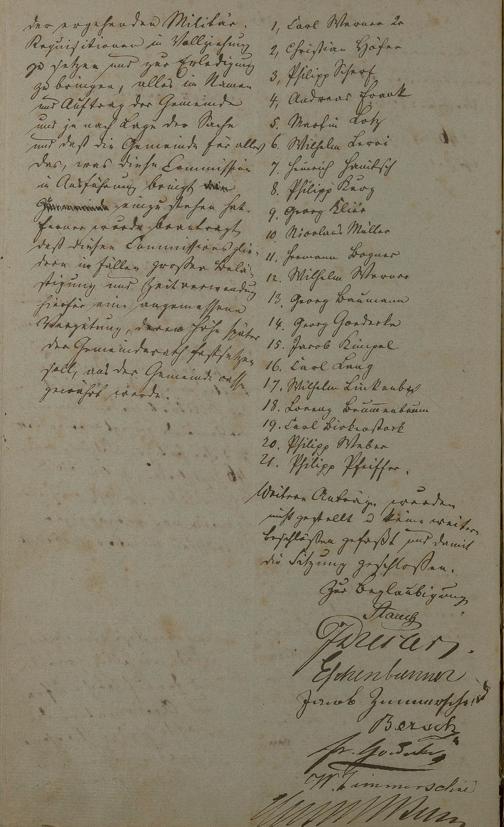 der ergehenden Militär-
Requisitionen in Vollziehung
zu setzen und zur Erledigung
zu bringen, alles im Namen
und Auftrag der Gemeinde
und je nach Lage der Sache
und daß die Gemeinde für alles
das, was diese Commission
in Ausführung bringt
einzustehen hat.
Ferner wurde beantragt
daß diesen Commissionsglie-
dern in Fällen großer Belä-
stigung und Zeitverwendung
hierfür eine angemessene
Vergütung, deren Höhe später
der Gemeinderath festsetzen
soll, aus der Gemeindecasse
gewährt werde.
1, Carl Werner 2r
2, Christian Höfer
3, Philipp Scherf
4, Andreas Frank
5. Martin Lotz
6. Wilhelm Leroi
7. Heinrich Hanitsch
8. Philipp Kurz
9. Georg Klier
10. Nicolaus Müller
11. Hermann Bogner
12. Wilhelm Werner
13. Georg Baumann
14. Georg Goedecke
15. Jacob Kimpel
16. Carl Lang
17. Wilhelm Linkenbach
18. Lorenz Brummenbaum
19. Carl Birkenstock
20. Philipp Weber
21. Philipp Pfeiffer.
Weitere Anträge wurden
nicht gestellt u keine weitere
Beschlüsse gefaßt und damit
die Sitzung geschlossen.
Zur Beglaubigung
Stauch
Eschenbrenner
Jacob Zimmerschied
Bersch
W. Zimmerschied